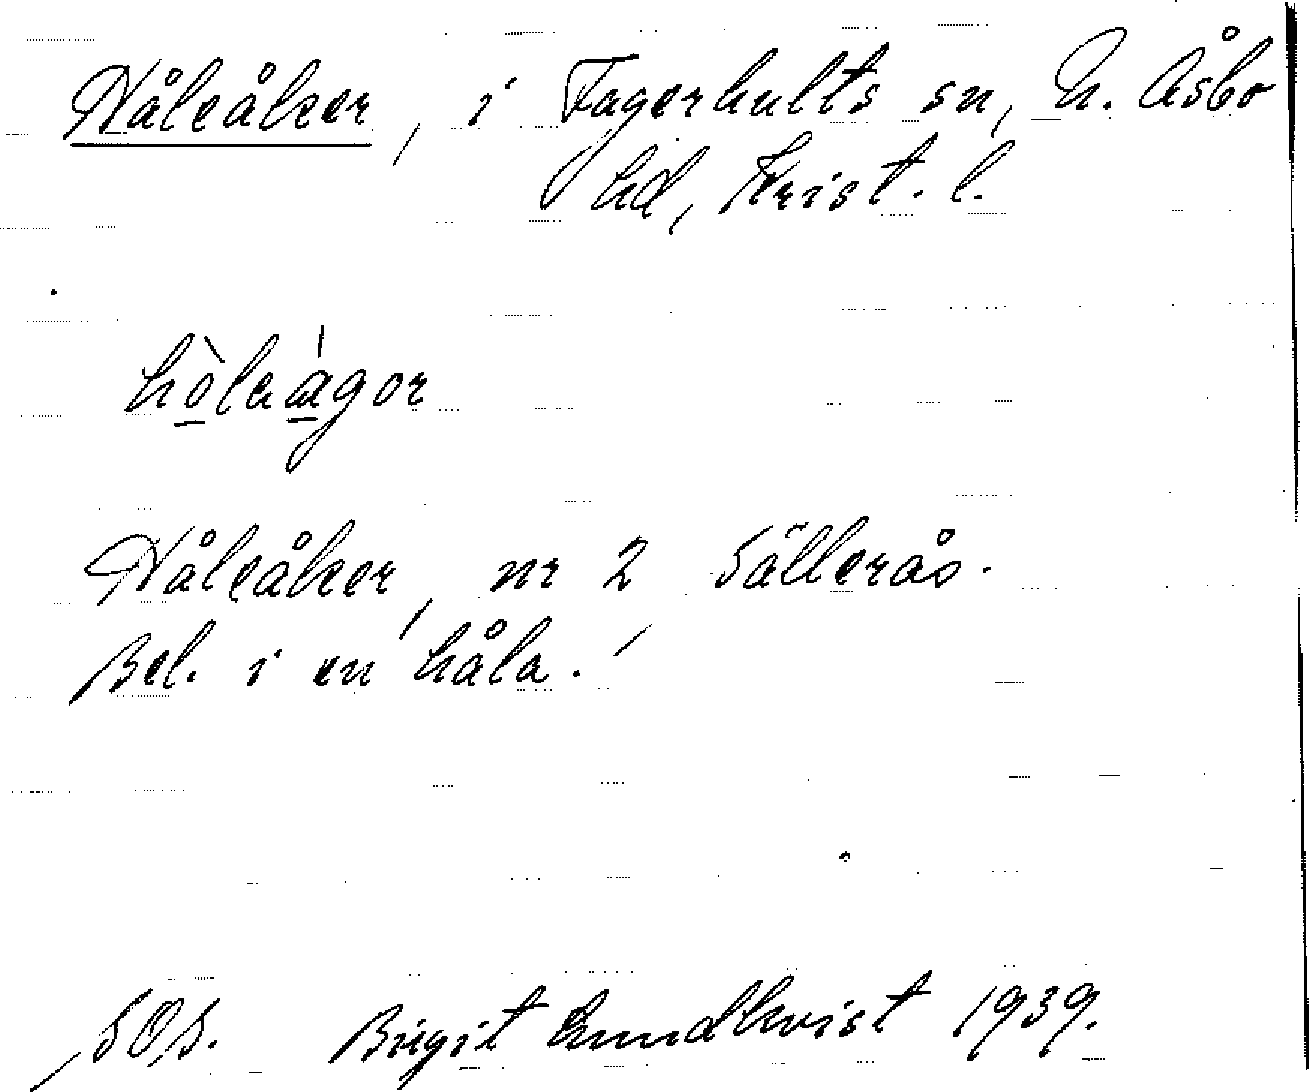 Håleåker, i Fagerhults sn, N. Åsbo
hd, Krist. l.
hòleágor
Håleåker, nr 2 Sällerås.
Bel. i en håla.
SOS. Birgit Lundkvist 1939.